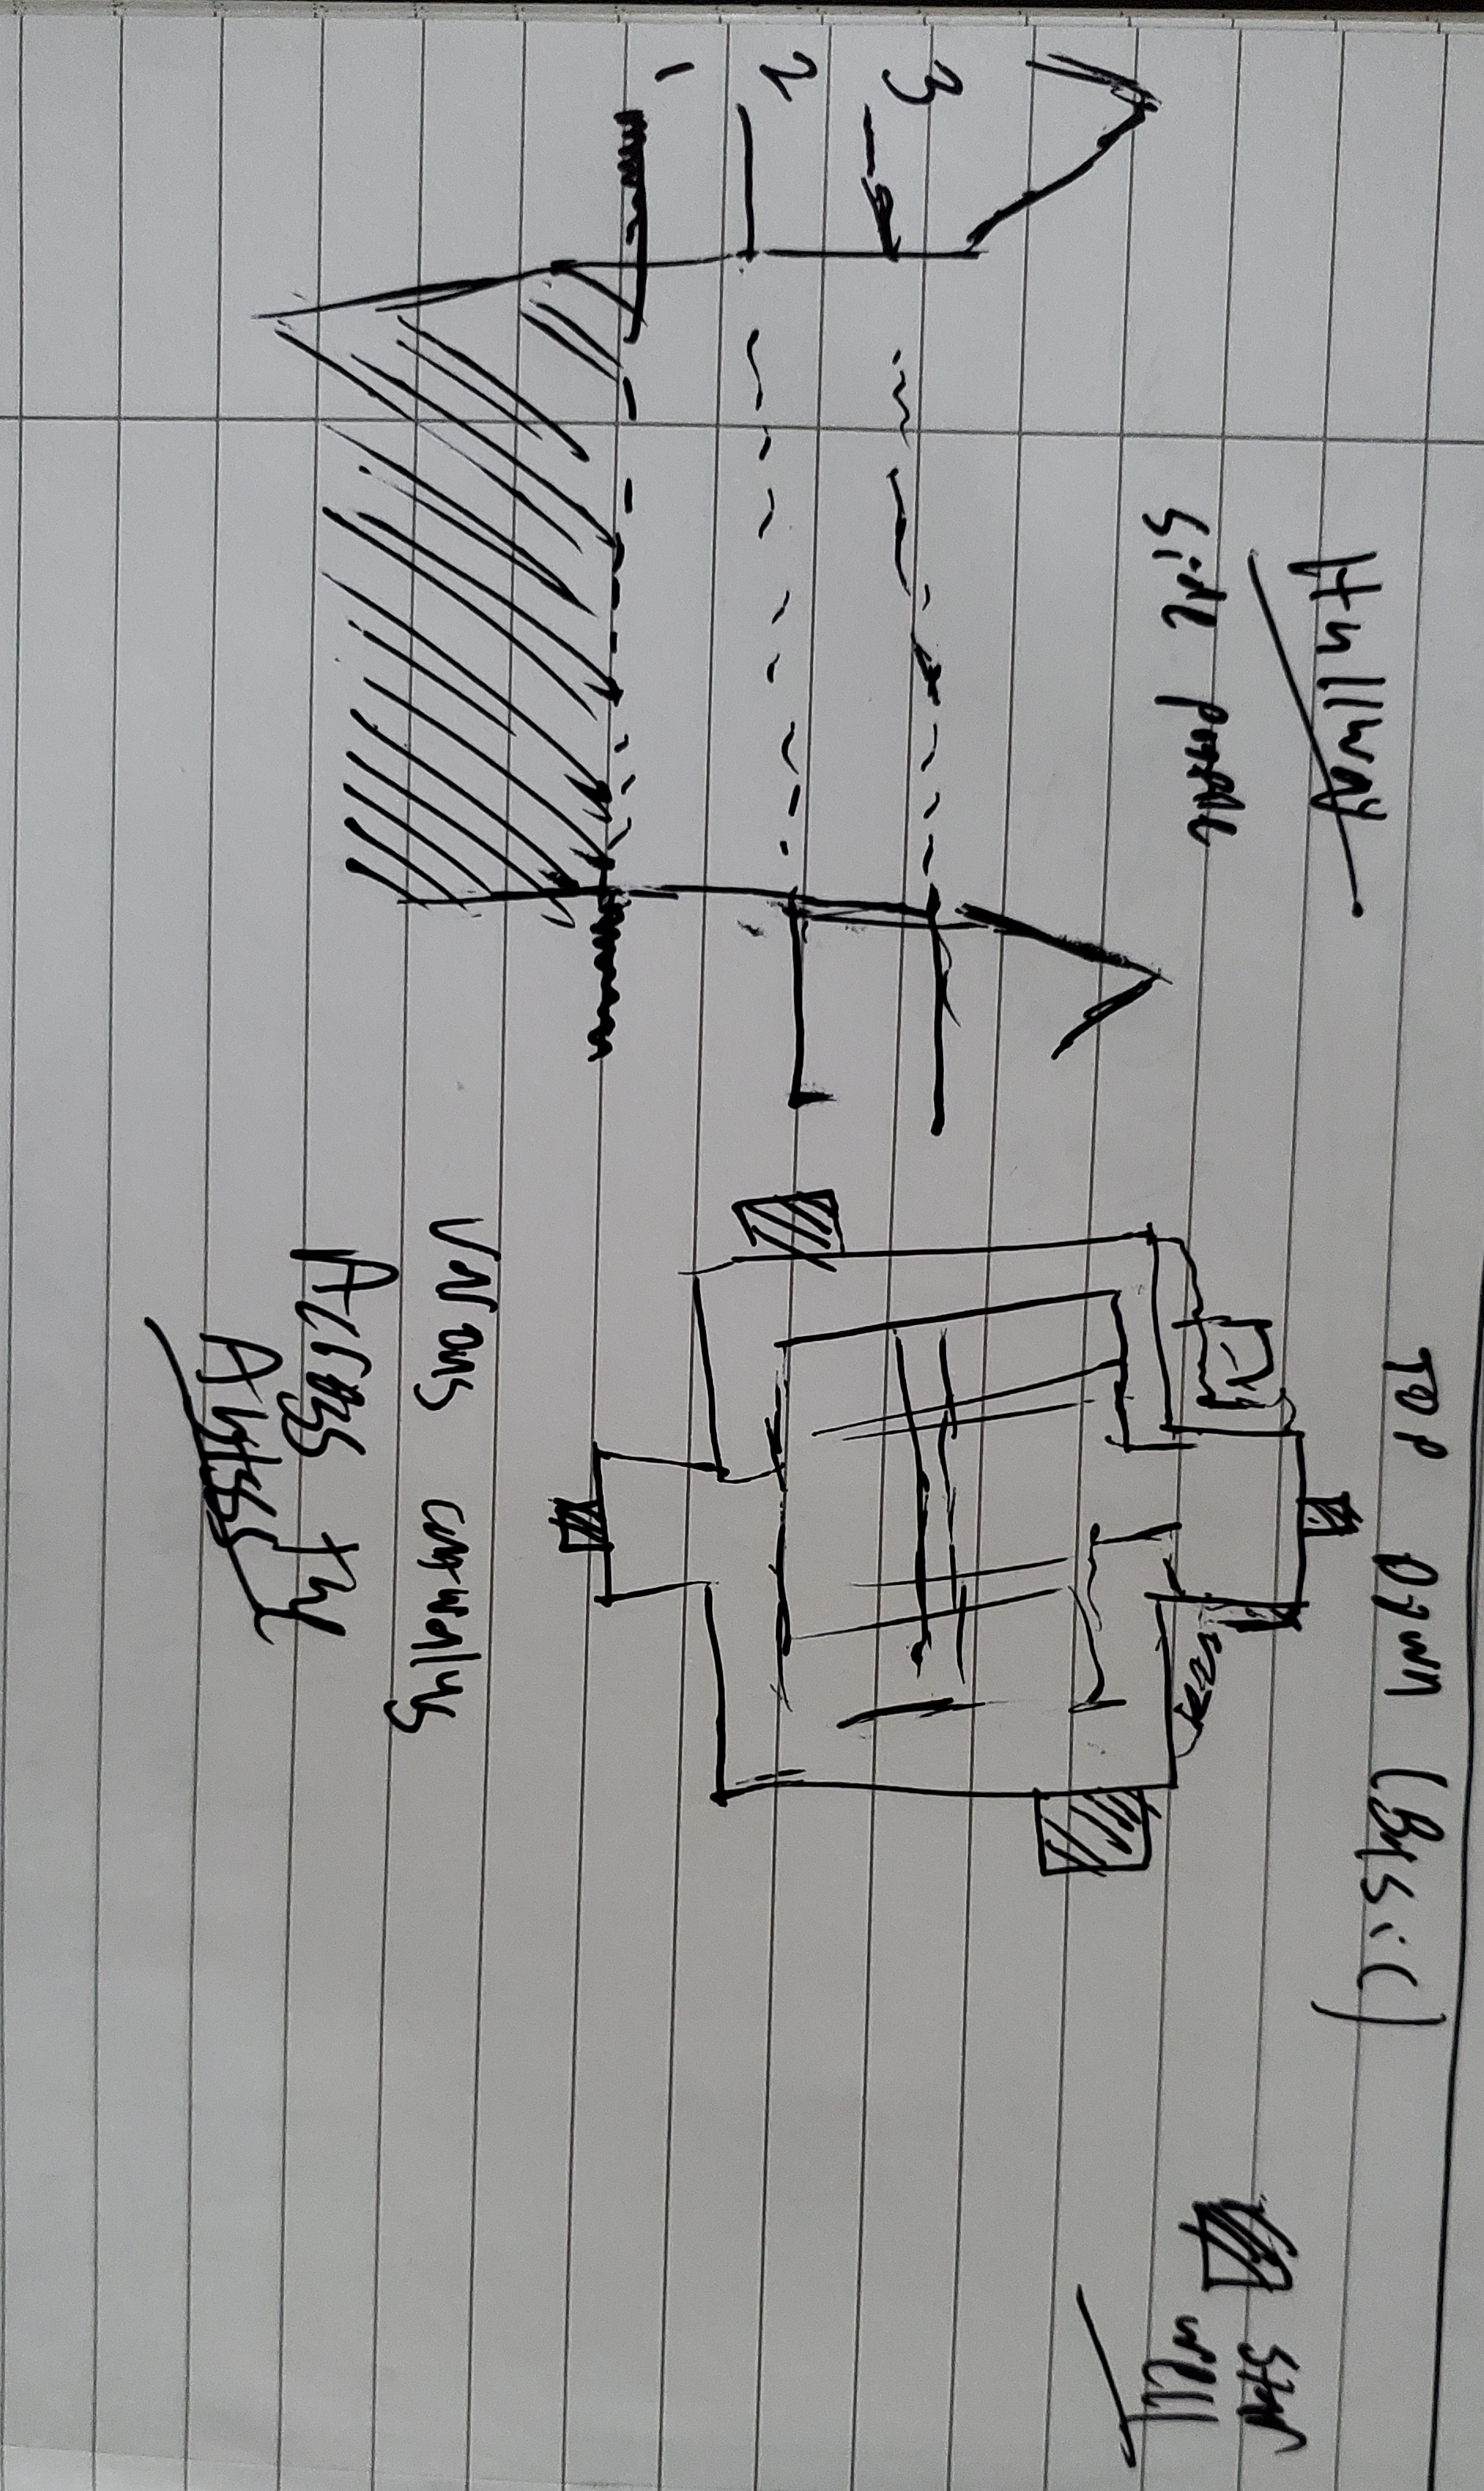 Hallway
Side profile
3
2
1
TOP DOWN (Basic)
Various catwalks
Across the
Abyss
Stair
well